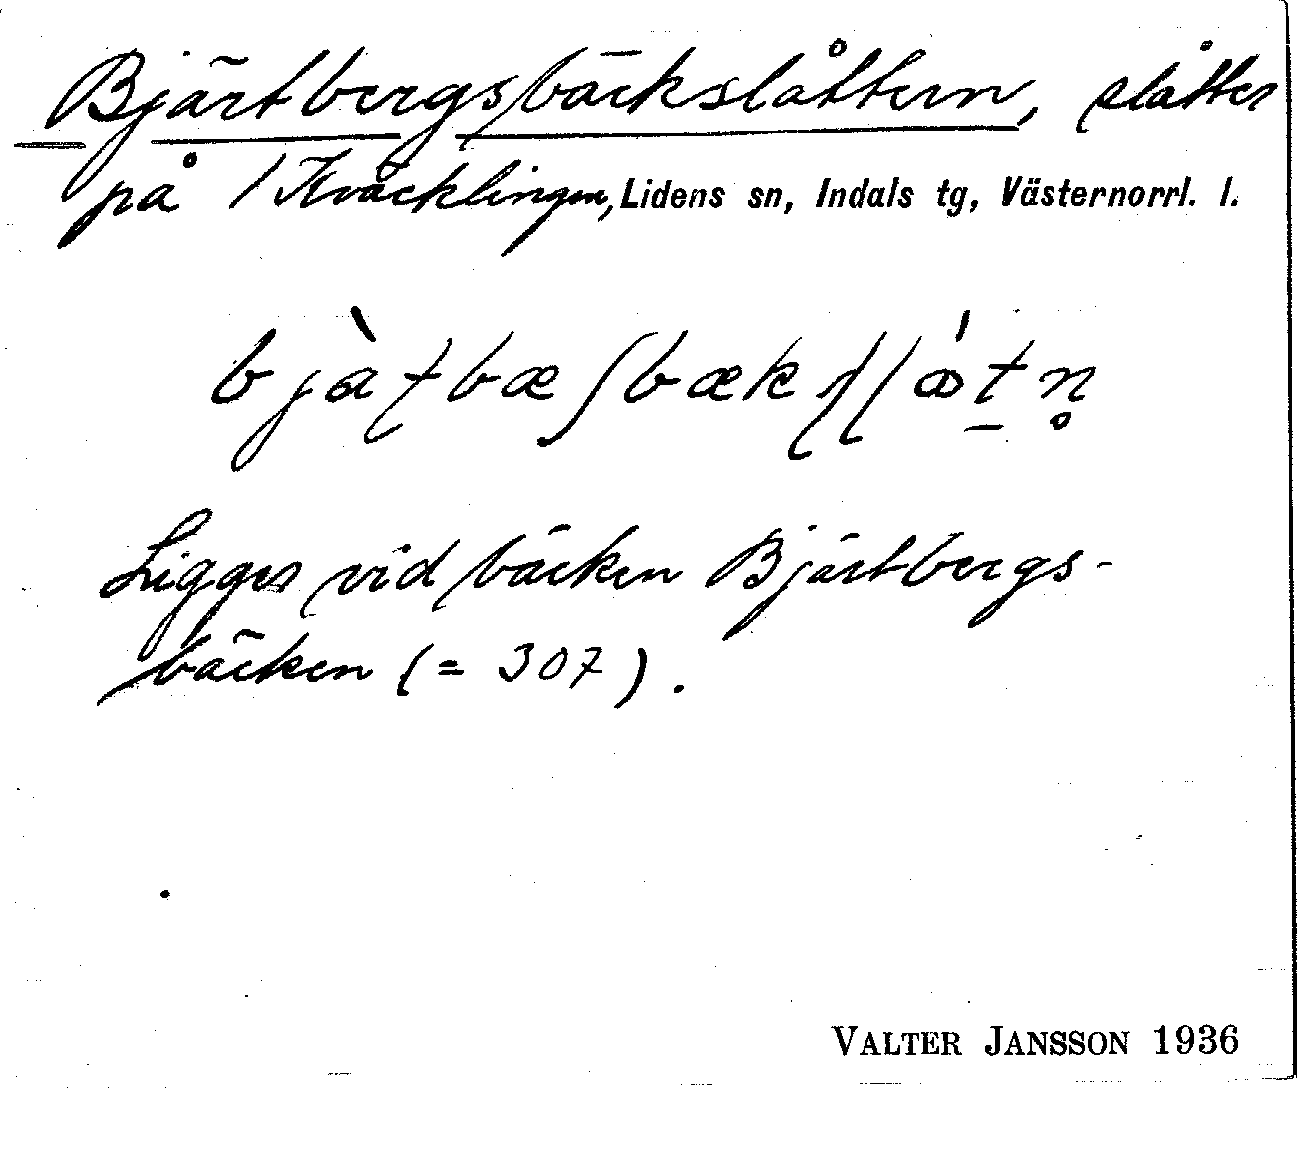 Bjärtbergsbäckslåttern, slåtter
på / Kväcklingen, Lidens sn, Indals tg, Västernorrl. l.
Ligger vid bäcken Bjärtbergs-
bäcken (= 307).
VALTER JANSSON 1936